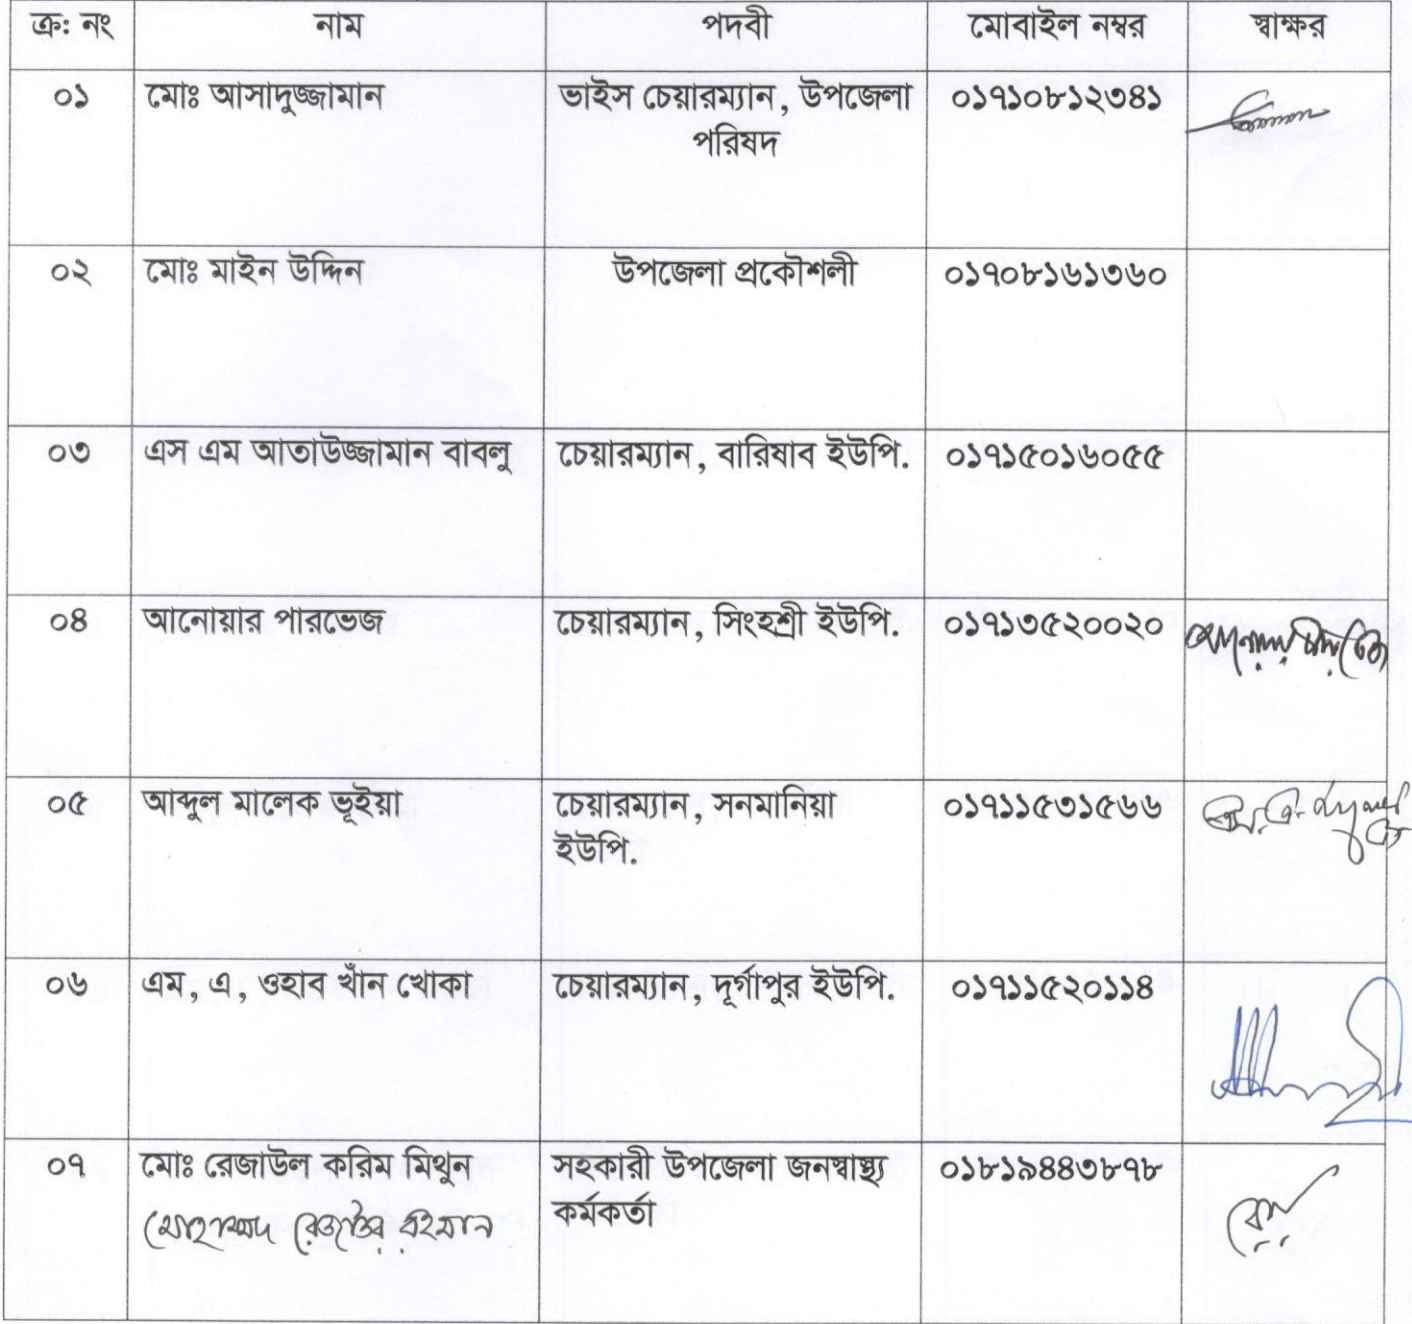 ক্র: নং নাম পদবী মোবাইল নম্বর স্বাক্ষর
০১ মোঃ আসাদুজ্জামান ভাইস চেয়ারম্যান, উপজেলা ০১৭১০৮১২৩৪১
পরিষদ
০২ মোঃ মাইন উদ্দিন উপজেলা প্রকৌশলী ০১৭০৮১৬১৩৬০
০৩ এস এম আতাউজ্জামান বাবলু চেয়ারম্যান, বারিষাব ইউপি. ০১৭১৫০১৬০৫৫
০৪ আনোয়ার পারভেজ চেয়ারম্যান, সিংহশ্রী ইউপি. ০১৭১৩৫২০০২০ আনোয়ার পারভেজ
০৫ আব্দুল মালেক ভূইয়া চেয়ারম্যান, সনমানিয়া ০১৭১১৫৩১৫৬৬
ইউপি.
০৬ এম, এ, ওহাব খাঁন খোকা চেয়ারম্যান, দূর্গাপুর ইউপি. ০১৭১১৫২০১১৪
০৭ মোঃ রেজাউল করিম মিথুন সহকারী উপজেলা জনস্বাস্থ্য ০১৮১৯৪৪৩৮৭৮
মোহাম্মদ রহমান কর্মকর্তা